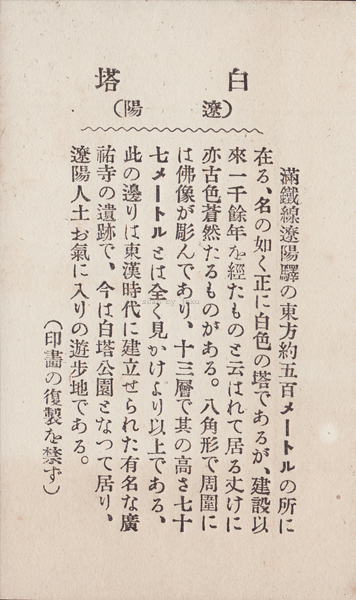 白塔
(遼陽)
滿鐵線遼陽驛の東方約五百メートルの所に
在る、名の如く正に白色の塔であるが、建設以
來一千餘年を經たものと云はれて居る丈けに
亦古色蒼然たるものがある。八角形で周圍に
は佛像が彫んであり、十三層で其の高さ七十
七メートルとは全く見かけより以上である、
此の邊りは東漢時代に建立せられた有名な廣
祐寺の遺跡で、今は白塔公園となつて居り、
遼陽人士お氣に入りの遊步地である。
(印畫の復製を禁ず)